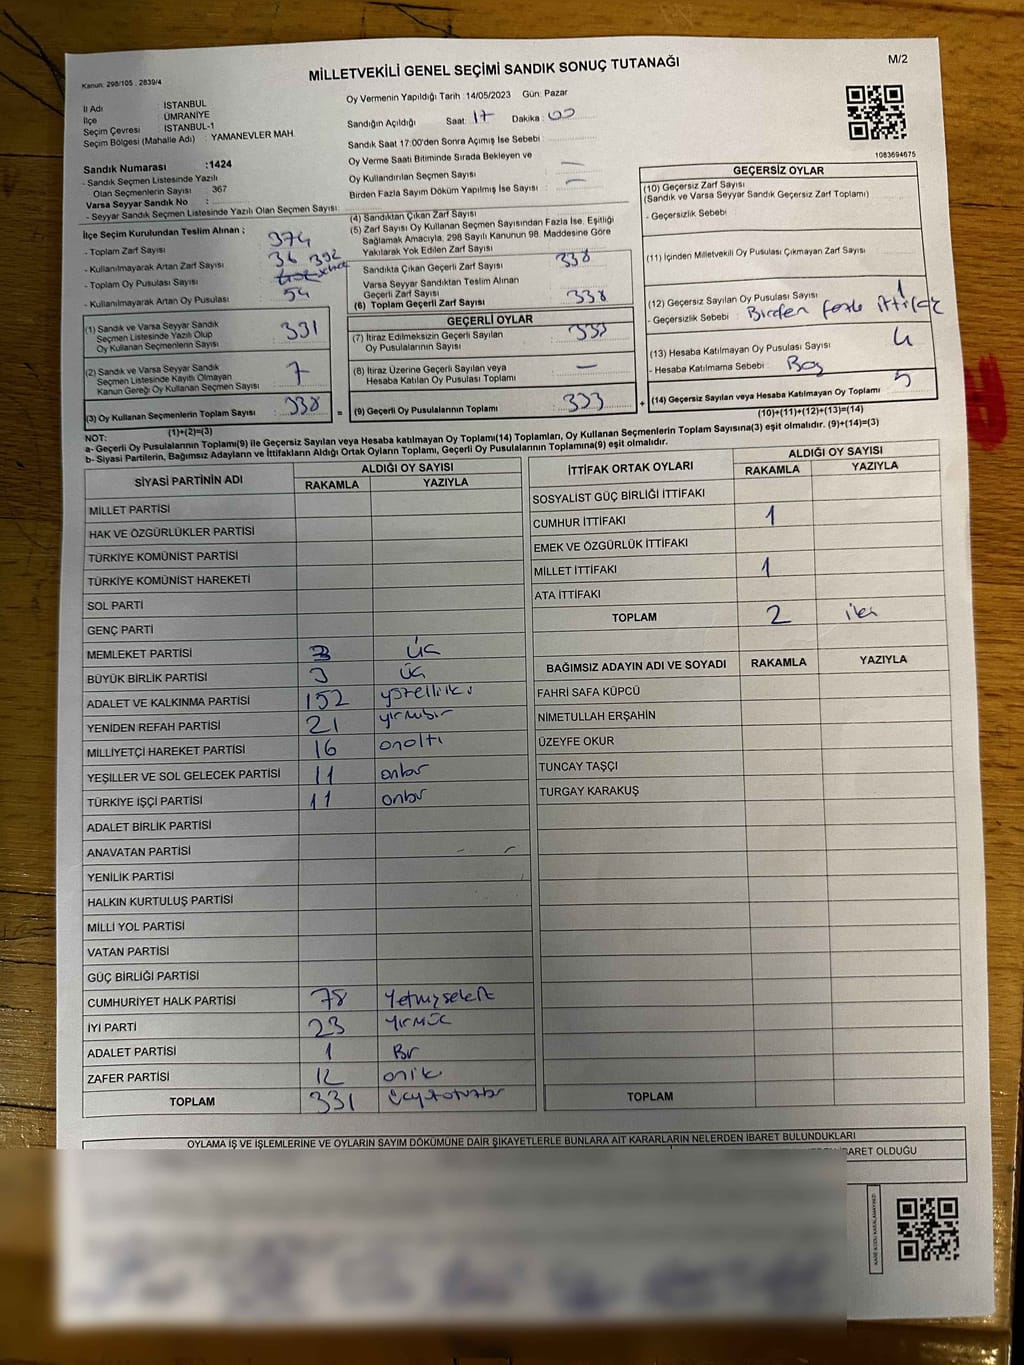 Kanun: 298/105 , 2839/4
MİLLETVEKİLİ GENEL SEÇİMİ SANDIK SONUÇ TUTANAĞI
M/2
İl Adı : İSTANBUL
İlçe : ÜMRANİYE
Seçim Çevresi : İSTANBUL-1
Seçim Bölgesi (Mahalle Adı) : YAMANEVLER MAH
Oy Vermenin Yapıldığı Tarih : 14/05/2023 Gün: Pazar
Sandığın Açıldığı Saat : 17 Dakika : 00
Sandık Saat 17:00'den Sonra Açımış İse Sebebi :
Oy Verme Saati Bitiminde Sırada Bekleyen ve
Oy Kullandırılan Seçmen Sayısı : —
Birden Fazla Sayım Döküm Yapılmış İse Sayısı : —
1083694675
Sandık Numarası :1424
- Sandık Seçmen Listesinde Yazılı
Olan Seçmenlerin Sayısı : 367
Varsa Seyyar Sandık No :
- Seyyar Sandık Seçmen Listesinde Yazılı Olan Seçmen Sayısı:
İlçe Seçim Kurulundan Teslim Alınan ;
- Toplam Zarf Sayısı : 374
- Kullanılmayarak Artan Zarf Sayısı : 36
- Toplam Oy Pusulası Sayısı : 392
- Kullanılmayarak Artan Oy Pusulası : 54
(1) Sandık ve Varsa Seyyar Sandık
Seçmen Listesinde Yazılı Olup
Oy Kullanan Seçmenlerin Sayısı : 331
(2) Sandık ve Varsa Seyyar Sandık
Seçmen Listesinde Kayıtlı Olmayan
Kanun Gereği Oy Kullanan Seçmen Sayısı : 7
(3) Oy Kullanan Seçmenlerin Toplam Sayısı : 338
(1)+(2)=(3)
(4) Sandıktan Çıkan Zarf Sayısı
(5) Zarf Sayısı Oy Kullanan Seçmen Sayısından Fazla İse, Eşitliği
Sağlamak Amacıyla, 298 Sayılı Kanunun 98. Maddesine Göre
Yakılarak Yok Edilen Zarf Sayısı
Sandıkta Çıkan Geçerli Zarf Sayısı : 338
Varsa Seyyar Sandıktan Teslim Alınan
Geçerli Zarf Sayısı
(6) Toplam Geçerli Zarf Sayısı : 338
GEÇERLİ OYLAR
(7) İtiraz Edilmeksizin Geçerli Sayılan
Oy Pusulalarının Sayısı : 333
(8) İtiraz Üzerine Geçerli Sayılan veya
Hesaba Katılan Oy Pusulası Toplamı : —
= (9) Geçerli Oy Pusulalarının Toplamı : 333 +
GEÇERSİZ OYLAR
(10) Geçersiz Zarf Sayısı
(Sandık ve Varsa Seyyar Sandık Geçersiz Zarf Toplamı)
- Geçersizlik Sebebi :
(11) İçinden Milletvekili Oy Pusulası Çıkmayan Zarf Sayısı
(12) Geçersiz Sayılan Oy Pusulası Sayısı 1
- Geçersizlik Sebebi : Birden fazla ittifak
(13) Hesaba Katılmayan Oy Pusulası Sayısı 4
- Hesaba Katılmama Sebebi : Boş
(14) Geçersiz Sayılan veya Hesaba Katılmayan Oy Toplamı : 5
(10)+(11)+(12)+(13)=(14)
NOT:
a- Geçerli Oy Pusulalarının Toplamı(9) ile Geçersiz Sayılan veya Hesaba katılmayan Oy Toplamı(14) Toplamları, Oy Kullanan Seçmenlerin Toplam Sayısına(3) eşit olmalıdır. (9)+(14)=(3)
b- Siyasi Partilerin, Bağımsız Adayların ve İttifakların Aldığı Ortak Oyların Toplamı, Geçerli Oy Pusulalarının Toplamına(9) eşit olmalıdır.
SİYASİ PARTİNİN ADI
ALDIĞI OY SAYISI
RAKAMLA YAZIYLA
MİLLET PARTİSİ
HAK VE ÖZGÜRLÜKLER PARTİSİ
TÜRKİYE KOMÜNİST PARTİSİ
TÜRKİYE KOMÜNİST HAREKETİ
SOL PARTİ
GENÇ PARTİ
MEMLEKET PARTİSİ 3 üç
BÜYÜK BİRLİK PARTİSİ 3 üç
ADALET VE KALKINMA PARTİSİ 152 yüzelliiki
YENİDEN REFAH PARTİSİ 21 yirmibir
MİLLİYETÇİ HAREKET PARTİSİ 16 onaltı
YEŞİLLER VE SOL GELECEK PARTİSİ 11 onbir
TÜRKİYE İŞÇİ PARTİSİ 11 onbir
ADALET BİRLİK PARTİSİ
ANAVATAN PARTİSİ
YENİLİK PARTİSİ
HALKIN KURTULUŞ PARTİSİ
MİLLİ YOL PARTİSİ
VATAN PARTİSİ
GÜÇ BİRLİĞİ PARTİSİ
CUMHURİYET HALK PARTİSİ 78 Yetmişsekiz
İYİ PARTİ 23 Yirmiüç
ADALET PARTİSİ 1 Bir
ZAFER PARTİSİ 12 oniki
TOPLAM 331 üçyüzotuzbir
İTTİFAK ORTAK OYLARI
ALDIĞI OY SAYISI
RAKAMLA YAZIYLA
SOSYALİST GÜÇ BİRLİĞİ İTTİFAKI
CUMHUR İTTİFAKI 1
EMEK VE ÖZGÜRLÜK İTTİFAKI
MİLLET İTTİFAKI 1
ATA İTTİFAKI
TOPLAM 2 iki
BAĞIMSIZ ADAYIN ADI VE SOYADI RAKAMLA YAZIYLA
FAHRİ SAFA KÜPCÜ
NİMETULLAH ERŞAHİN
ÜZEYFE OKUR
TUNCAY TAŞÇI
TURGAY KARAKUŞ
TOPLAM
OYLAMA İŞ VE İŞLEMLERİNE VE OYLARIN SAYIM DÖKÜMÜNE DAİR ŞİKAYETLERLE BUNLARA AİT KARARLARIN NELERDEN İBARET BULUNDUKLARI
İBARET OLDUĞU
KARE KODU KARALAMAYINIZ!